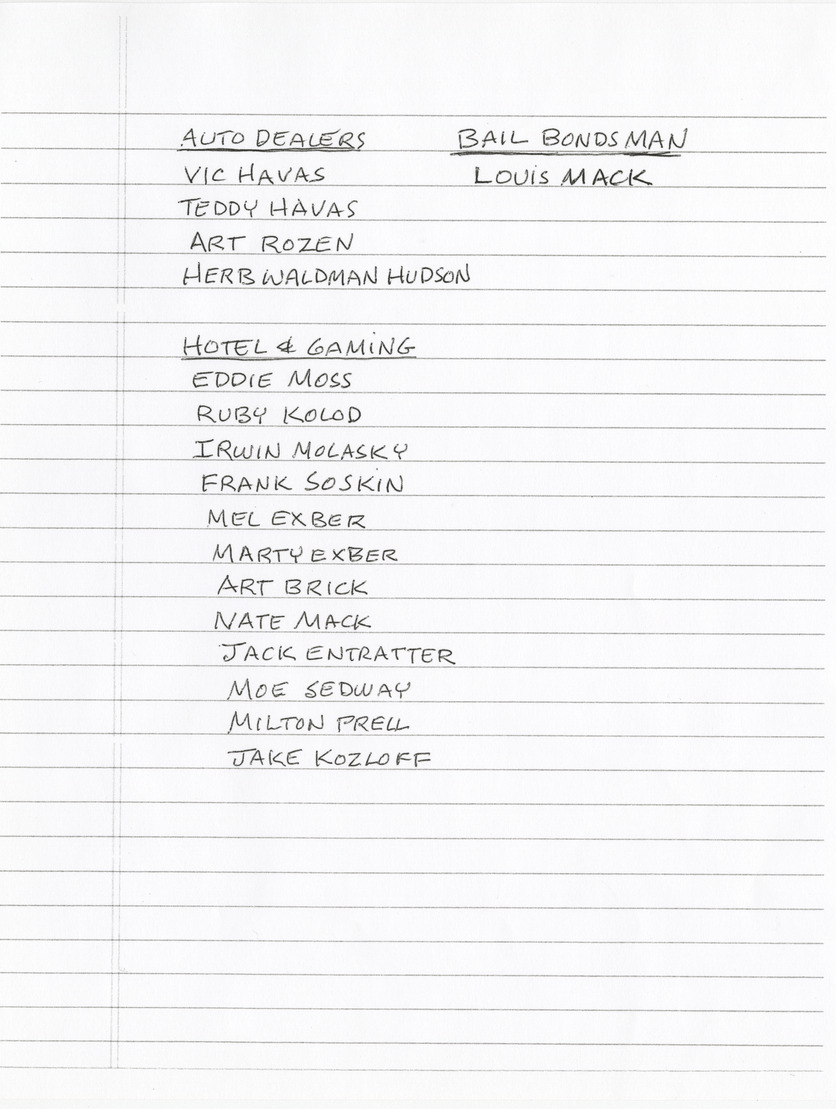 AUTO DEALERS
VIC HAVAS
TEDDY HAVAS
ART ROZEN
HERB WALDMAN HUDSON
BAIL BONDSMAN
LOUIS MACK
HOTEL & GAMING
EDDIE MOSS
RUBY KOLOD
IRWIN MOLASKY
FRANK SOSKIN
MEL EXBER
MARTY EXBER
ART BRICK
NATE MACK
JACK ENTRATTER
MOE SEDWAY
MILTON PRELL
JAKE KOZLOFF